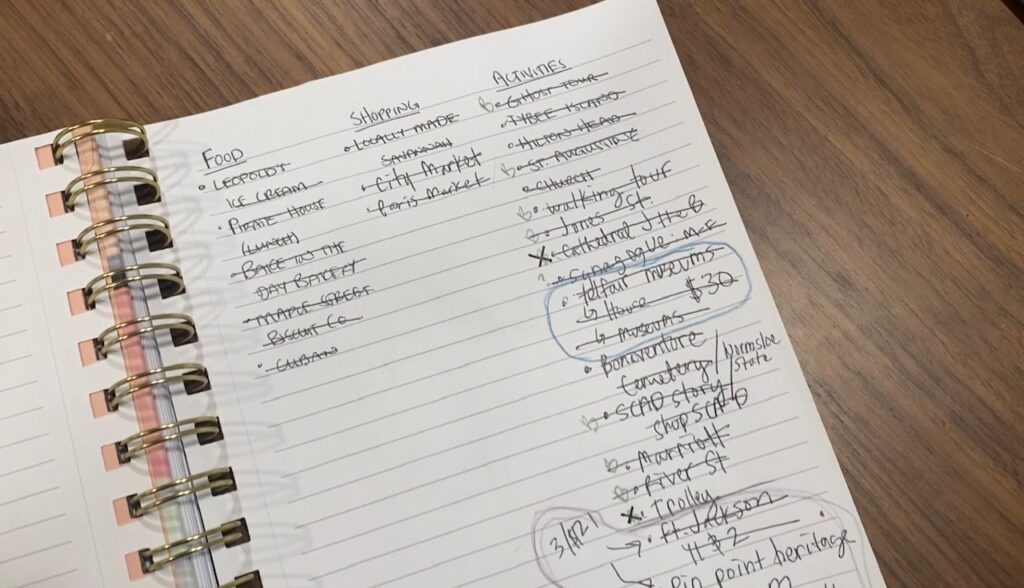 FOOD
• LEOPOLD'S
ICE CREAM
• PIRATE HOUSE
(LUNCH)
• BACK IN THE
DAY BAKERY
• MAPLE STREET
BISCUIT CO
• CUBAN
SHOPPING
• LOCALLY MADE
SAVANNAH
• City Market
• Paris Market
ACTIVITIES
• GHOST TOUR
• TYBEE ISLAND
• HILTON HEAD
• ST. AUGUSTINE
• CHURCH
• walking tour
• Jones St.
X • Cathedral J the B
• Synagogue: M-F
• Telfair museums
↳ House $30
↳ museums
• Bonaventure
Cemetery / Wormsloe
State
• SCAD story /
shop SCAD
• Marriott
• River St
X • Trolley
• Ft. Jackson
$2
Pin point heritage